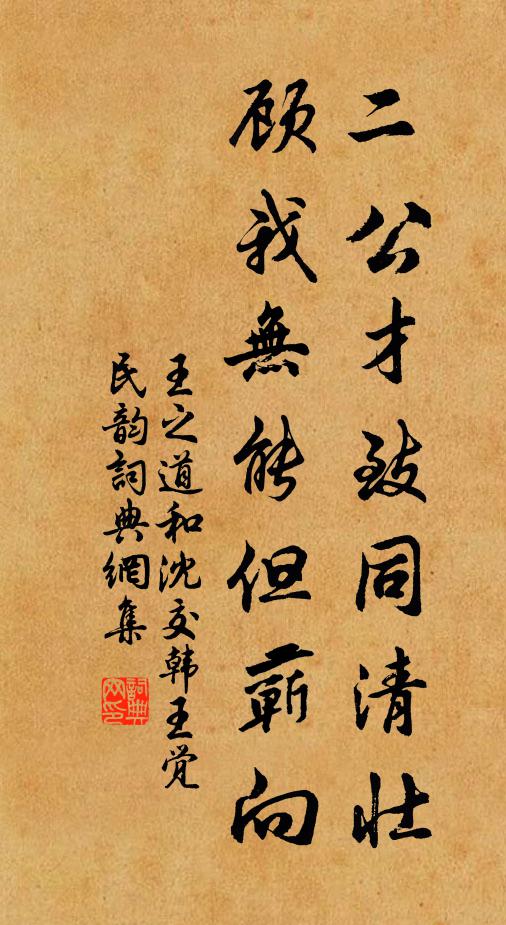 二公才致同清壮
顾我無能但蕲向
王之道和沈交韩王觉
民韵詞典網集
詞典
网印